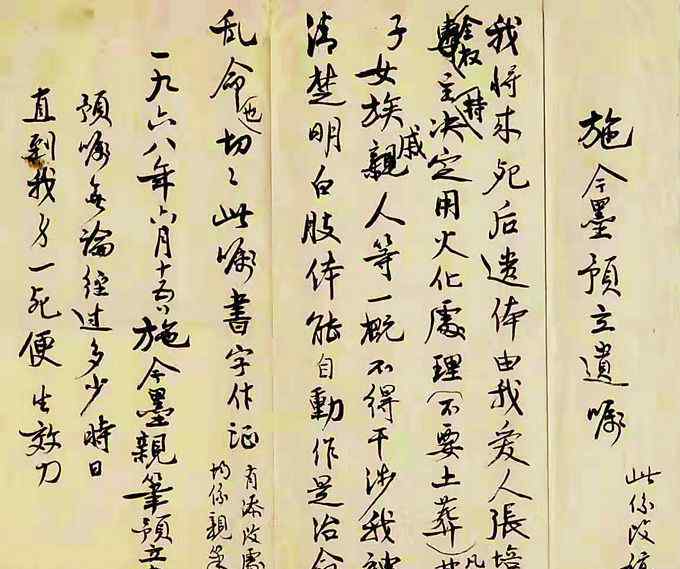 施今墨預立遺嘱
此係改
我将来死后遗体由我爱人張培
全权主持决定用火化處理(不要土葬)凡
子女族戚親人等一概不得干涉我神
清楚明白肢体能自動作是治命
乱命也切々此嘱書字作证
有添改處
均係親筆
一九六八年六月十五日施今墨親筆預立
預嘱無論經過多少時日
直到我身一死便生效力